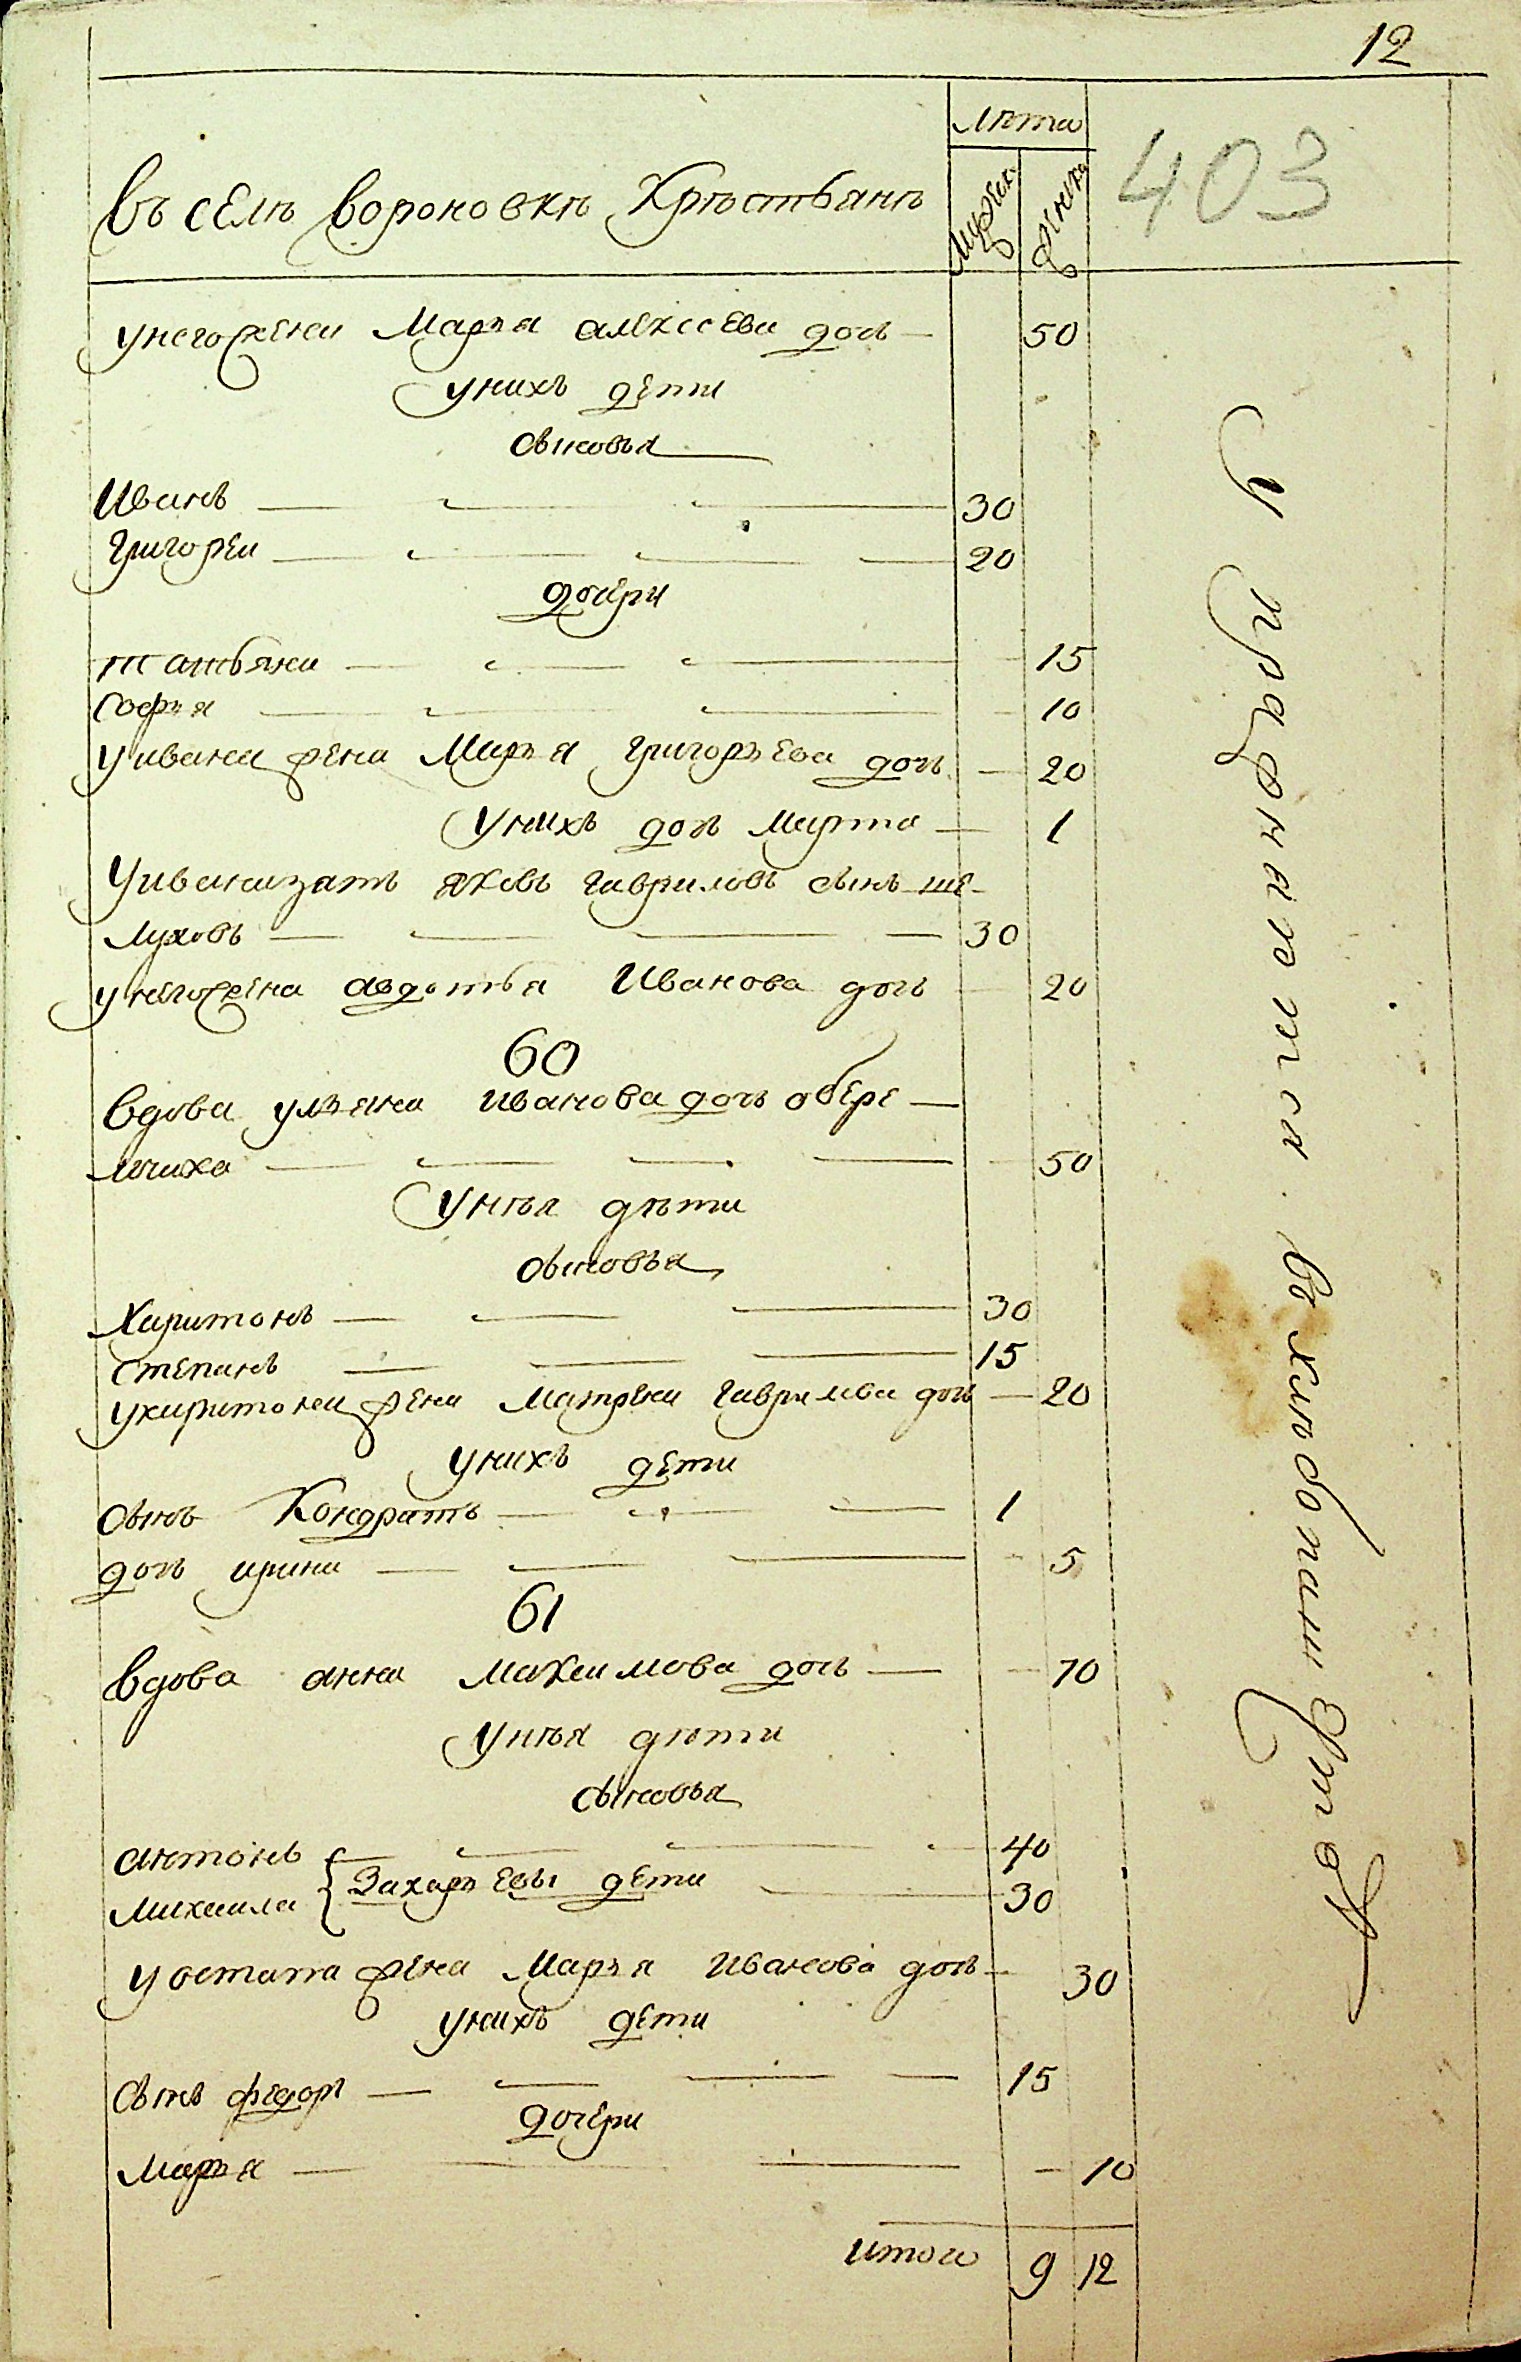 12
403
лѣта
Въ селѣ вороновкѣ Хрѣстьянъ
мужск:
женка
унегожена Марья алексеева дочь 50
унихъ дети
сыновья
Иванъ 30
Григореи 20
дочери
татьяна 15
софья 10
уивана жена Марья Григорьева дочь 20
Унихъ дочь марта 1
Уивана зять яковъ гавриловъ сынъ ше-
луховъ 30
унегожена авдотья Иванова дочь 20
60
вдова ульяна иванова дочь обере
мчиха 50
Унѣя дѣти
сыновья
Харитонъ 30
степанъ 15
ухаритона жена матрена гаврилова дочь 20
Унихъ дети
сынъ Кондратъ 1
дочь ирина 5
61
вдова анна максимова дочь 70
Унѣя дѣти
сыновья
антонъ 40
михаила захарьевы дети 30
у остапа жена марья иванова дочь 30
унихъ дети
сынъ федоръ 15
дочери
марья 10
итого 9 12